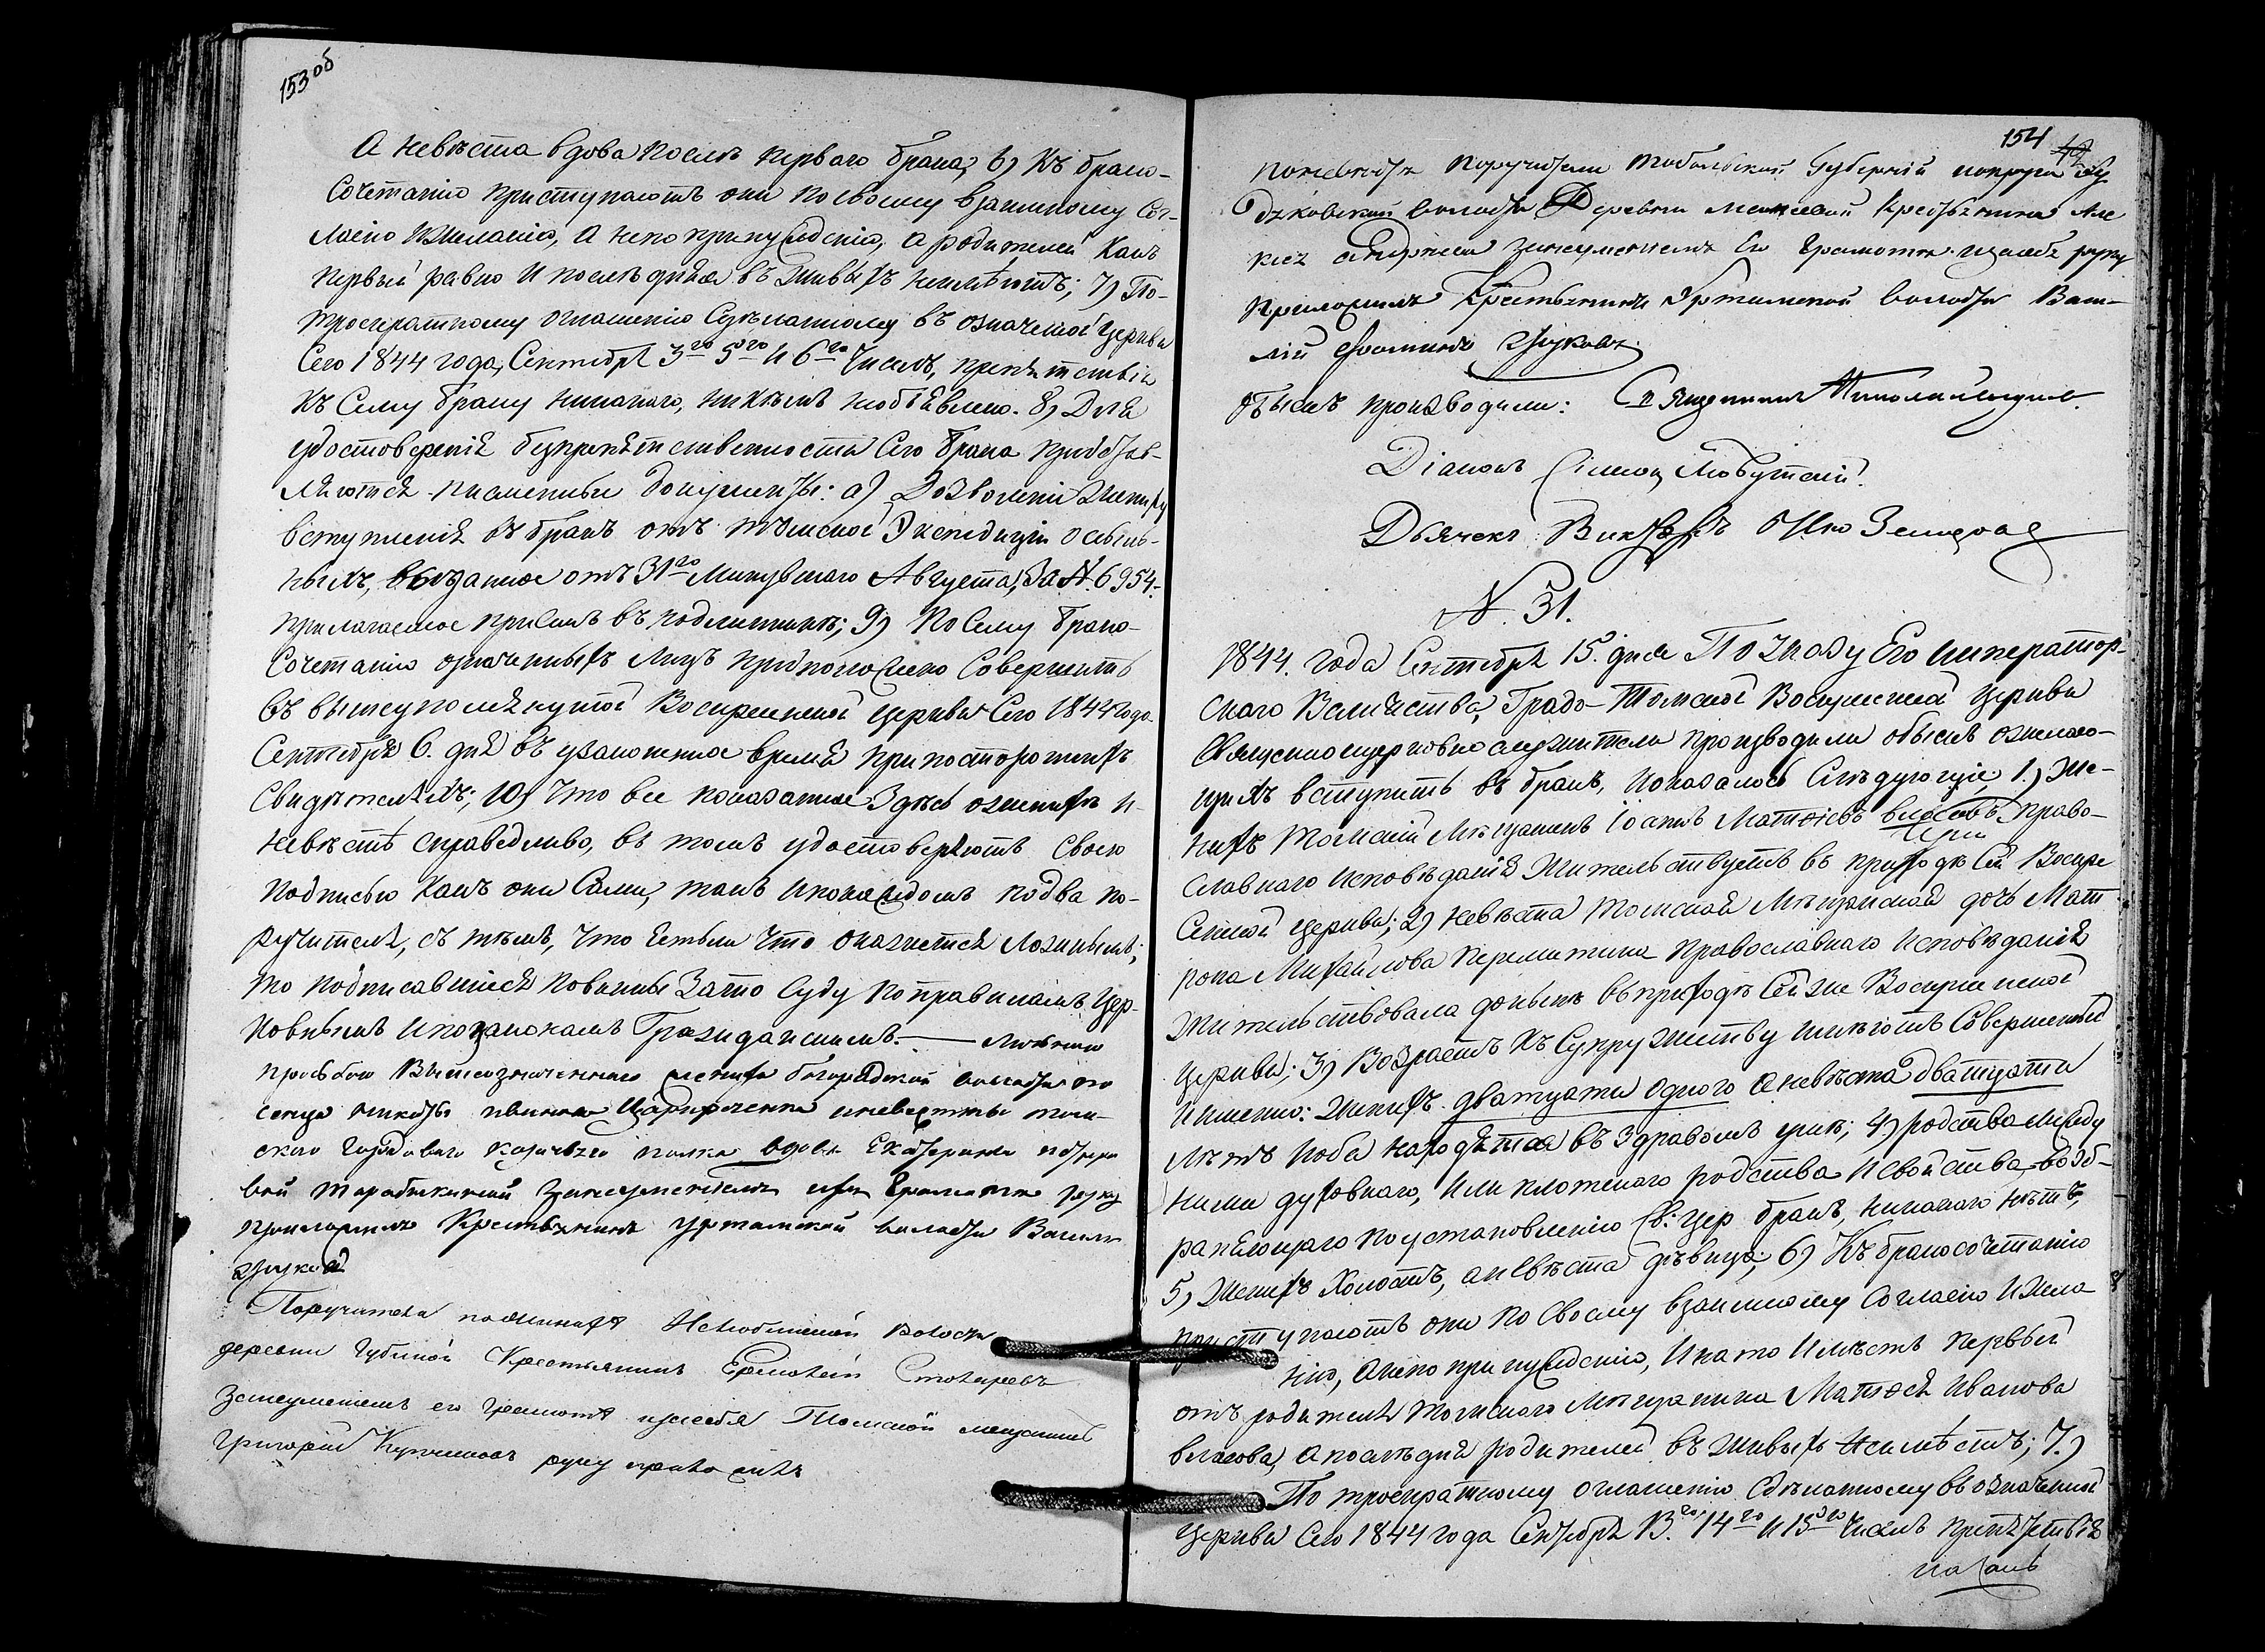 153 об
А невѣста вдова послѣ перваго брака, 6) Къ брако-
сочетанію приступаютъ они по своему взаимному Сог-
ласію и желанію, а не по принужденію, а родителей какъ
первый равно и послѣдняя въ живыхъ неимѣютъ; 7) По
троекратному оглашенію Сдѣланному въ означеной церкви
Сего 1844 года, Сентября 3го 5го и 6го Числъ, препятствія
къ Сему браку никакого, никѣмъ необъявлено. 8) Для
удостоверенія безпрепятственности Сего брака представ-
ляются писменные документы: а) Дозволеніе Жениху
вступленія въ бракъ отъ Томской Экспедиціи о ссыль-
ныхъ, выданное отъ 31го Минувшаго Августа, За №. 6954.
прилагаемое при семъ въ подлинникѣ; 9) По Сему брако-
Сочетанію означенныхъ Лицъ предположено Совершить
въ вышеупомянутой Воскресенской церкви Сего 1844 года
Сентября 6. дня въ узаконенное время при постороннихъ
Свидѣтеляхъ; 10) Что все показанное Здѣсь о женихѣ и
невѣстѣ справедливо, въ томъ удостоверяютъ своею
подписью какъ они Сами, такъ и по каждомъ по два по-
ручителя, съ тѣмъ, что Естьли что окажется Ложнымъ;
то подписавшіеся повинны За то Суду по правиламъ Цер-
ковнымъ и по законамъ Гражданскимъ. — личною
просьбою Вышеозначенного жениха богородской волости по
селенца Никиты и невесты том-
ского Городового казачьего полка вдовы Екатерины
за неуменіемъ ихъ грамоте руку
приложилъ Крестьянинъ Уртамской волости Василій
Жуковъ
Поручители по женихѣ Нелюбинской волости
деревни Губиной Крестьянинъ Ермолай Столяревъ
Занеуменіемъ его грамотѣ и за себя Томской мещанинъ
Григорій руку приложилъ
154
поневѣсте поручители Тобольской Губерній
волости Деревни Крестьянина Але
ксѣ Андреева занеуменіемъ Ево грамоте. и засебя руку
приложилъ Крестьянинъ Уртамской волости Васи-
лій Фоминъ Жуковъ.
обыскъ производили: Священникъ Николай
Діаконъ Сімеон Любутскій.
Дьячекъ Викторъ
№. 31.
1844. года Сентября 15. дня По Указу Его Император-
скаго Величества, Градо-Томской Воскресенской церкви
Священноцерковнослужители производили обыскъ о желаю-
щихъ вступить въ бракъ, и оказалось Слѣдующіе, 1.) Же-
нихъ Томскій Мѣщанинъ Іоаннъ Матөіевъ Власовъ Право-
славнаго исповѣданія Жительствуетъ въ приходѣ Сей Воскре
Сенской церкви; 2) невѣста томской Мѣщанской дочь Мат
рона Михайлова Перемитина Православнаго исповѣданія
Жительствовала донынѣ въ приходѣ Сей же Воскресенской
церкви; 3) Возрастъ къ Супружеству имѣютъ Совершенной
именно: женихъ. дватцати одного а невѣста дватцати
лѣтъ и оба находятся въ здравомъ умѣ; 4) родства между
ними духовнаго, или плотскаго родства и свойства возб-
раняющаго по установленію Св: Цер бракъ, никакого нѣтъ,
5) Женихъ Холостъ, а невѣста дѣвица; 6) Къ бракосочетанію
приступаютъ они по своему взаимному Согласію и жела
нію, а не по принужденію, и на то имѣетъ первый
отъ родителя томскаго Мѣщанина Матөея Иванова
Власова, а послѣдня родителей въ живыхъ неимѣетъ; 7.)
По троекратному оглашенію Сдѣланному въ означеной
церкви Сего 1844 года Сентября 13.го 14го и 15го числъ препятствія